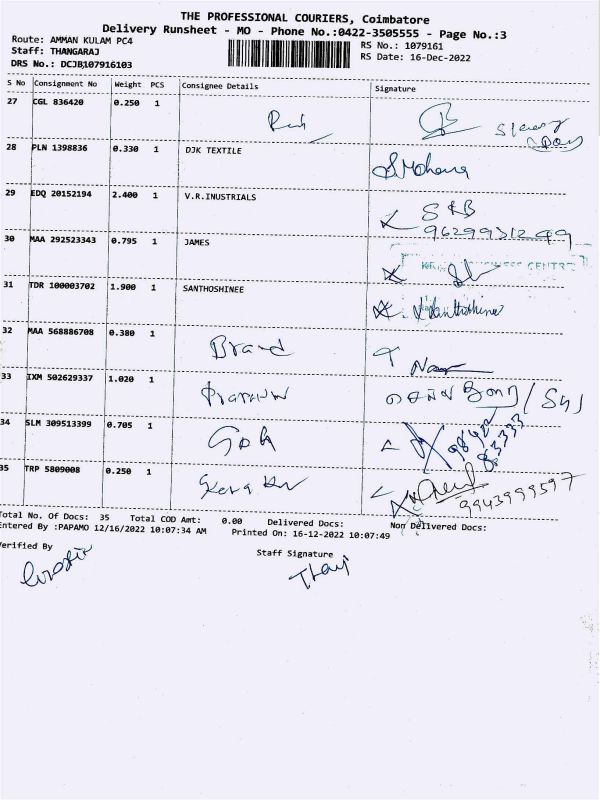 THE PROFESSIONAL COURIERS, Coimbatore
Delivery Runsheet - MO - Phone No.:0422-3505555 - Page No.:3
Route: AMMAN KULAM PC4
RS No.: 1079161
Staff: THANGARAJ
RS Date: 16-Dec-2022
DRS No.: DCJB107916103
S No Consignment No Weight PCS Consignee Details Signature
27 CGL 836420 0.250 1
28 PLN 1398836 0.330 1 DJK TEXTILE S.Mohana
29 EDQ 20152194 2.400 1 V.R.INUSTRIALS S&B
9629931249
30 MAA 292523343 0.795 1 JAMES
31 TDR 100003702 1.900 1 SANTHOSHINEE Santhoshinee
32 MAA 568886708 0.380 1 Brand
33 IXM 502629337 1.020 1
34 SLM 309513399 0.705 1
35 TRP 5809008 0.250 1
9943999597
Total No. Of Docs: 35 Total COD Amt: 0.00 Delivered Docs: Non Delivered Docs:
Entered By :PAPAMO 12/16/2022 10:07:34 AM Printed On: 16-12-2022 10:07:49
Verified By
Staff Signature